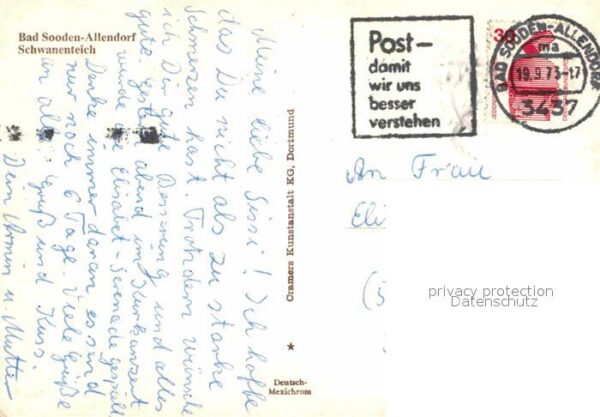 Bad Sooden-Allendorf
Schwanenteich
Meine liebe Sissi! Ich hoffe
das Du nicht als zu starke
Schmerzen hast. Trotzdem wünsche
ich Dir gute Besserung und alles
gute gestern abend im Kurkonzert
wurde d. Elisabet-Serenade gespielt
Denke immer daran es sind
nur noch 6 Tage. Viele Grüße
an alle Gruß und Kuss.
Dein Armin u. Mutter
Cramers Kunstanstalt KG, Dortmund
Deutsch-
Mexichrom
Post-
damit
wir uns
besser
verstehen
30
BAD SOODEN-ALLENDORF
ma
19.9.73-17
3437
An Frau
Eli
privacy protection
Datenschutz